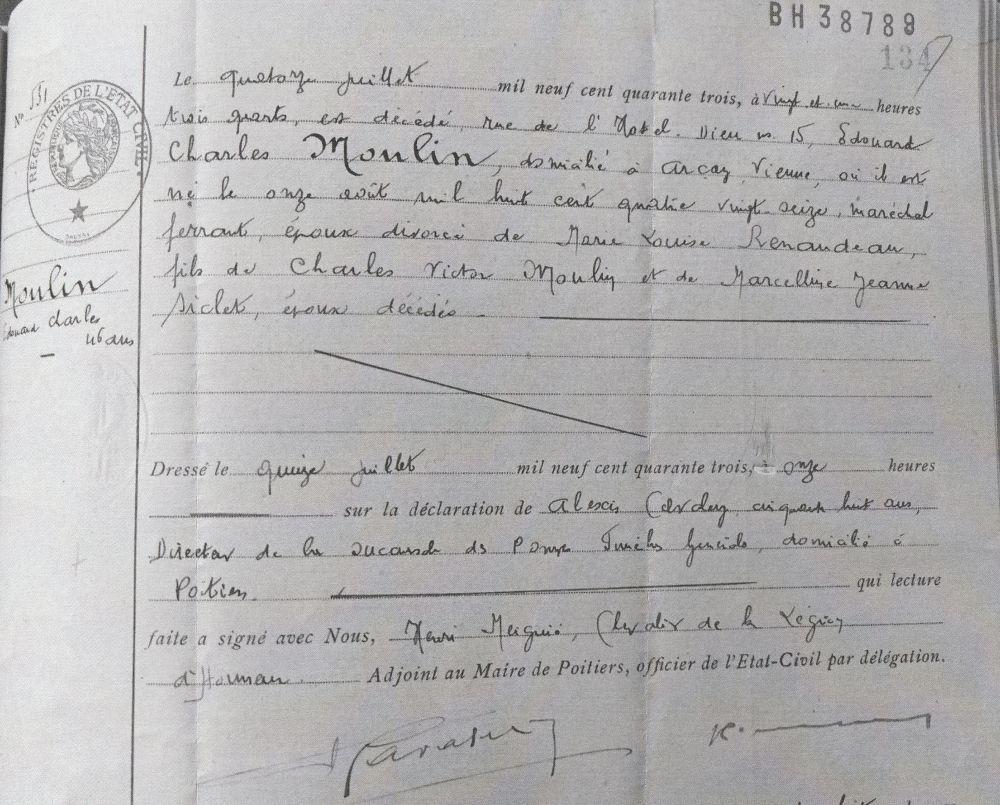 BH 38789
134
N° 551
REGISTRES DE L'ETAT CIVIL
Le quatorze juillet mil neuf cent quarante trois, à vingt et une heures
trois quarts, est décédé, rue de l'Hotel-Dieu n. 15, Edouard
Charles Moulin, domicilié à Arçay, Vienne, où il est
né le onze août mil huit cent quatre vingt-seize, maréchal
ferrant, époux divorcé de Marie Louise Renaudeau,
fils de Charles Victor Moulin et de Marcelline Jeanne
Siclet, époux décédés
Moulin
Edouard Charles
46 ans
Dressé le quinze juillet mil neuf cent quarante trois, à onze heures
sur la déclaration de Alexis cinquante huit ans,
Directeur de la succursale des Pompes Funèbres Générales, domicilié à
Poitiers. qui lecture
faite a signé avec Nous, Henri Chevalier de la Légion
d'Honneur Adjoint au Maire de Poitiers, officier de l'Etat-Civil par délégation.